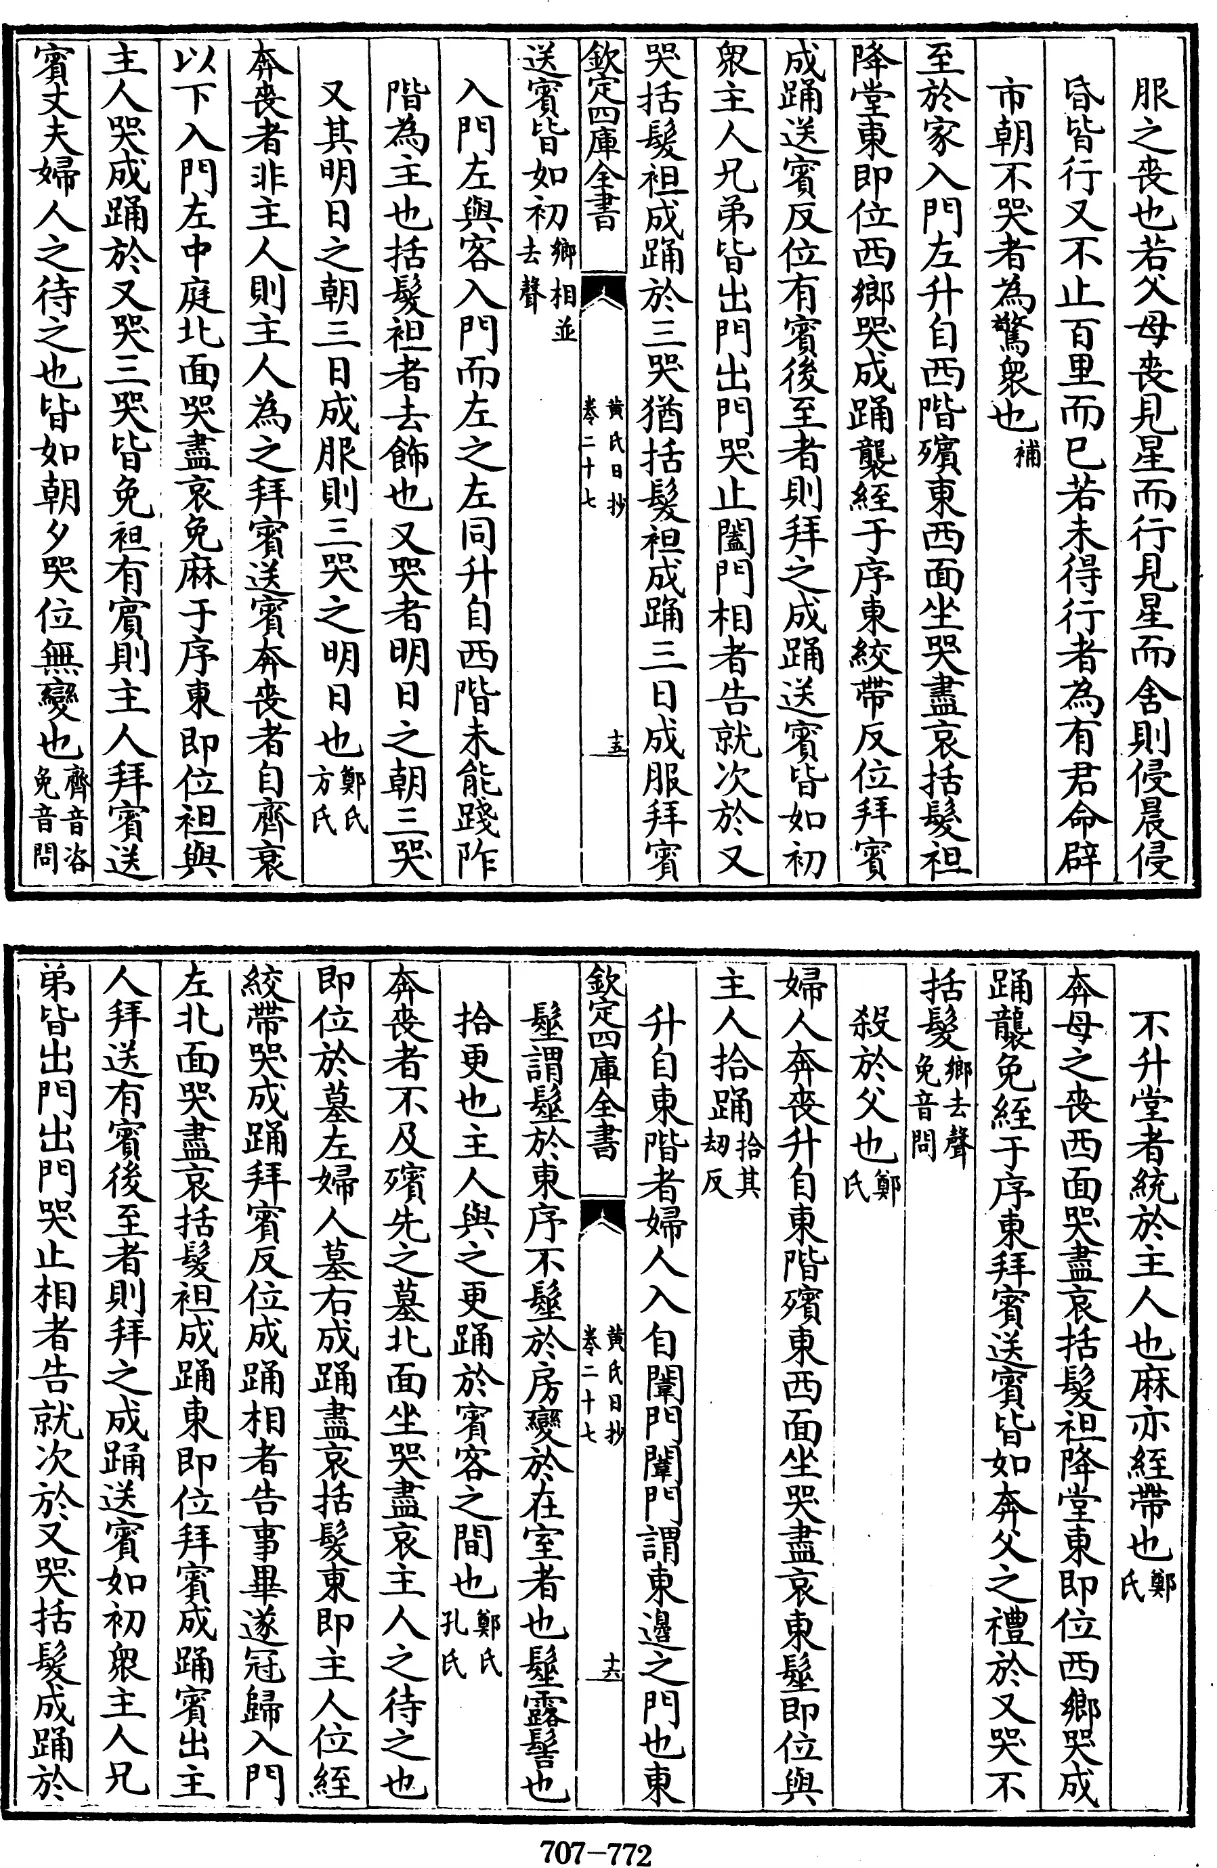 服之喪也若父母喪見星而行見星而舍則侵晨侵
昏皆行又不止百里而已若未得行者為有君命辟
市朝不哭者為驚衆也補
至於家入門左升自西階殯東西面坐哭盡哀括髮袒
降堂東即位西鄉哭成踊襲絰于序東絞帶反位拜賓
成踊送賓反位有賓後至者則拜之成踊送賓皆如初
衆主人兄弟皆出門出門哭止闔門相者告就次於又
哭括髮袒成踊於三哭猶括髮袒成踊三日成服拜賓
欽定四庫全書 黃氏日抄 卷二十七 十五
送賓皆如初鄉相並去聲
入門左與客入門而左之左同升自西階未能踐阼
階為主也括髮袒者去飾也又哭者明日之朝三哭
又其明日之朝三日成服則三哭之明日也鄭氏方氏
奔喪者非主人則主人為之拜賓送賓奔喪者自齊衰
以下入門左中庭北面哭盡哀免麻于序東即位袒與
主人哭成踊於又哭三哭皆免袒有賓則主人拜賓送
賓丈夫婦人之待之也皆如朝夕哭位無變也齊音咨免音問
不升堂者統於主人也麻亦絰帶也鄭氏
奔母之喪西面哭盡哀括髮袒降堂東即位西鄉哭成
踊襲免絰于序東拜賓送賓皆如奔父之禮於又哭不
括髮鄉去聲免音問
殺於父也鄭氏
婦人奔喪升自東階殯東西面坐哭盡哀東髽即位與
主人拾踊拾其刼反
升自東階者婦人入自闈門闈門謂東邊之門也東
欽定四庫全書 黃氏日抄 卷二十七 十六
髽謂髽於東序不髽於房變於在室者也髽露髻也
拾更也主人與之更踊於賓客之間也鄭氏孔氏
奔喪者不及殯先之墓北面坐哭盡哀主人之待之也
即位於墓左婦人墓右成踊盡哀括髮東即主人位絰
絞帶哭成踊拜賓反位成踊相者告事畢遂冠歸入門
左北面哭盡哀括髮袒成踊東即位拜賓成踊賓出主
人拜送有賓後至者則拜之成踊送賓如初衆主人兄
弟皆出門出門哭止相者告就次於又哭括髮成踊於
707-772